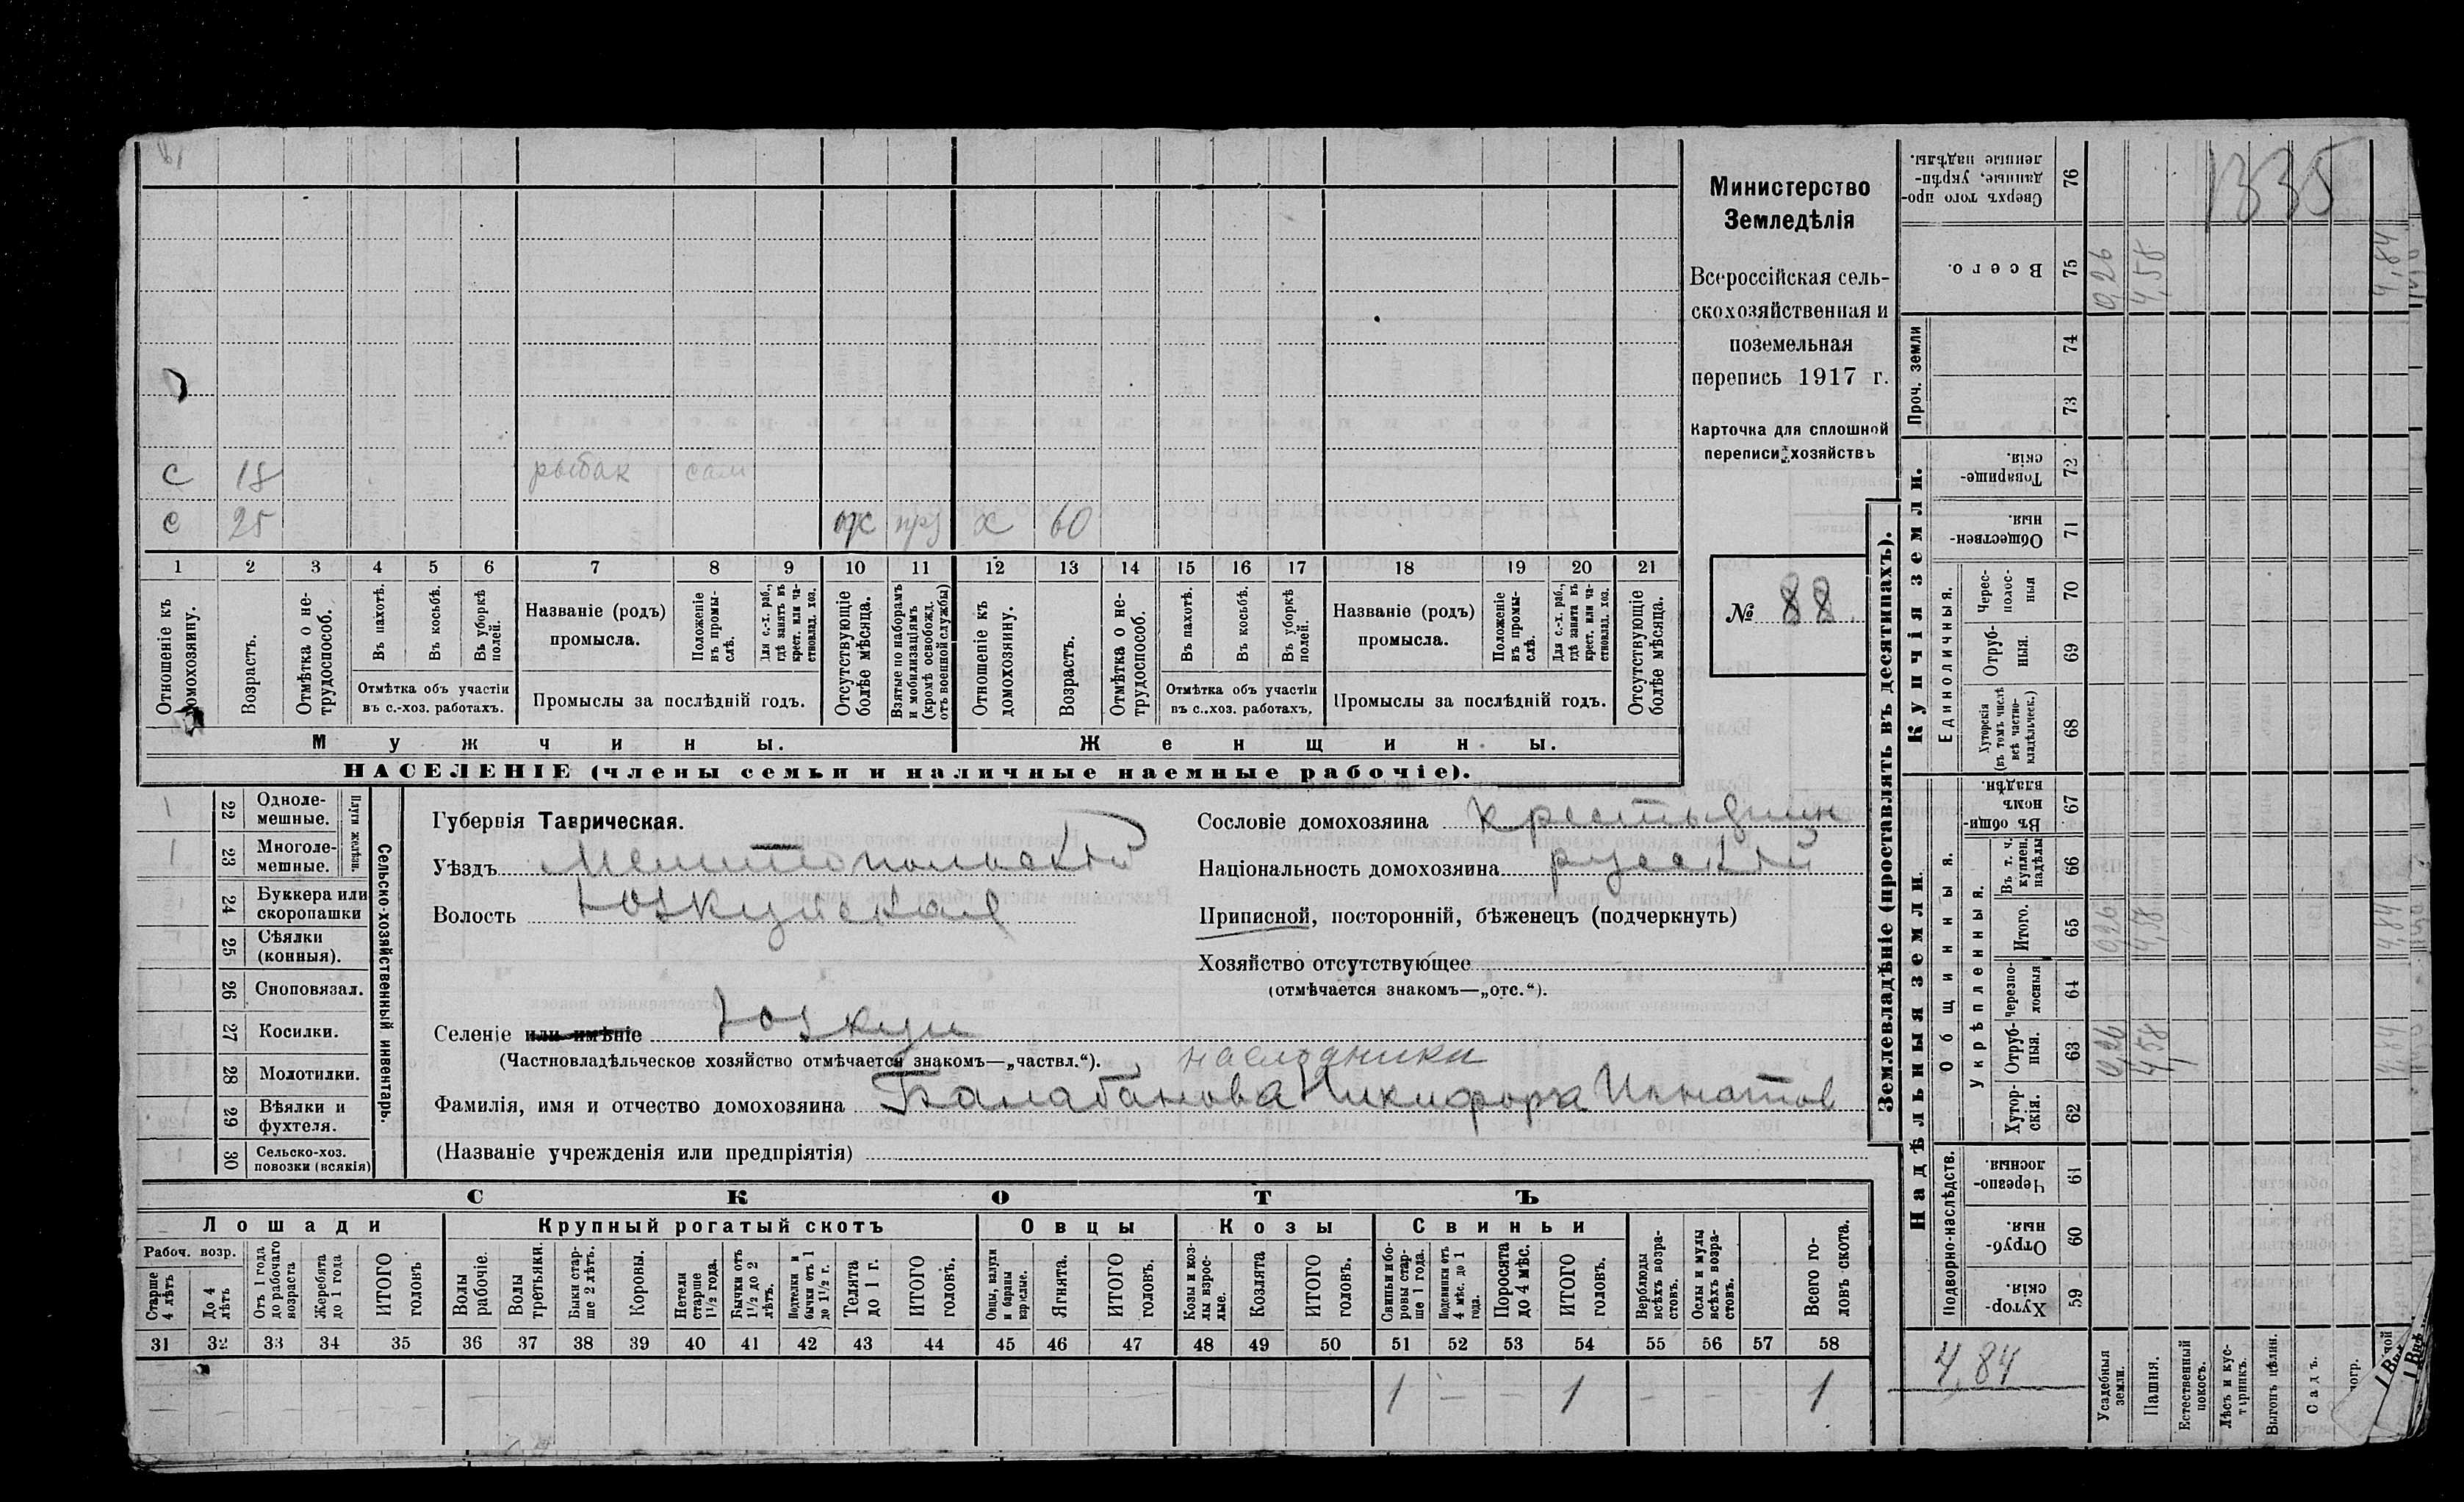 1335
с 18 рыбак сам
с 25 пр3 х 60
1 2 3 4 5 6 7 8 9 10 11 12 13 14 15 16 17 18 19 20 21
Отношеніе къ домохозяину.
Возрастъ.
Отмѣтка о не-
трудоспособ.
Въ пахотѣ.
Въ косьбѣ.
Въ уборкѣ
полей.
Отмѣтка объ участіи
въ с.-хоз. работахъ.
Названіе (родъ)
промысла.
Положеніе
въ промы-
слѣ.
Для с.-х. раб.,
гдѣ занятъ въ
крест. или ча-
ствовлад. хоз.
Промыслы за послѣдній годъ.
Отсутствующіе
болѣе мѣсяца.
Взятые по наборамъ
и мобилизаціямъ
(кромѣ освобожд.
отъ военной службы)
Отношеніе къ
домохозяину.
Возрастъ.
Отмѣтка о не-
трудоспособ.
Въ пахотѣ.
Въ косьбѣ.
Въ уборкѣ
полей.
Отмѣтка объ участіи
въ с.-хоз. работахъ.
Названіе (родъ)
промысла.
Положеніе
въ промы-
слѣ.
Для с.-х. раб.,
гдѣ занята въ
крест. или ча-
ствовлад. хоз.
Промыслы за послѣдній годъ.
Отсутствующіе
болѣе мѣсяца.
Мужчины.
Женщины.
НАСЕЛЕНІЕ (члены семьи и наличные наемные рабочіе).
Министерство
Земледѣлія
Всероссійская сель-
скохозяйственная и
поземельная
перепись 1917 г.
Карточка для сплошной
переписи хозяйствъ
№ 88.
Сельско-хозяйственный инвентарь.
Плуги желѣзн.
1 22 Одноле-
мешные.
1 23 Многоле-
мешные.
24 Буккера или
скоропашки
25 Сѣялки
(конныя).
26 Сноповязал.
27 Косилки.
28 Молотилки.
29 Вѣялки и
фухтеля.
30 Сельско-хоз.
повозки (всякія)
Губернія Таврическая.
Уѣздъ Мелитопольскій
Волость Юзкуйская
Селеніе или имѣніе Юзкуи
(Частновладѣльческое хозяйство отмѣчается знакомъ—„частвл.“).
наследники
Фамилія, имя и отчество домохозяина Балабанова Никифора Игнатов
(Названіе учрежденія или предпріятія)
Сословіе домохозяина крестьянин
Національность домохозяина русскій
Приписной, посторонній, бѣженецъ (подчеркнуть)
Хозяйство отсутствующее
(отмѣчается знакомъ—„отс.“).
СКОТЪ
Лошади
Рабоч. возр.
Старше
4 лѣтъ
До 4
лѣтъ
Отъ 1 года
до рабочаго
возраста
Жеребята
до 1 года
ИТОГО
головъ
Крупный рогатый скотъ
Волы
рабочіе.
Волы
третьяки.
Быки стар-
ше 2 лѣтъ.
Коровы.
Нетели
старше
1½ года.
Бычки отъ
1½ до 2
лѣтъ.
Подтелки и
бычки отъ 1
до 1½ г.
Телята
до 1 г.
ИТОГО
головъ.
Овцы
Овцы, валухи
и бараны
взрослые.
Ягнята.
ИТОГО
головъ.
Козы
Козы и коз-
лы взрос-
лые.
Козлята
ИТОГО
головъ.
Свиньи
Свиньи и бо-
ровы стар-
ше 1 года.
Подсвинки отъ
4 мѣс. до 1
года.
Поросята
до 4 мѣс.
ИТОГО
головъ.
Верблюды
всѣхъ возра-
стовъ.
Ослы и мулы
всѣхъ возра-
стовъ.
Всего го-
ловъ скота.
31 32 33 34 35 36 37 38 39 40 41 42 43 44 45 46 47 48 49 50 51 52 53 54 55 56 57 58
1 — — 1 — — — 1
Землевладѣніе (проставлять въ десятинахъ).
Сверхъ того про-
данные, укрѣп-
ленные надѣлы. 76
Всего. 75 0,26 4,58 4,84
Проч. земли 74
73
Купчія земли.
Товарище-
скія. 72
Обществен-
ныя. 71
Единоличныя.
Черес-
полос-
ныя 70
Отруб-
ныя. 69
Хуторскія
(въ томъ числѣ
всѣ частно-
владѣльческ.) 68
Надѣльныя земли.
Общинныя.
Въ общи-
номъ
владѣн. 67
Укрѣпленныя.
Въ т. ч.
куплен.
надѣлы 66
Итого. 65 0,26 4,58 4,84
Черезпо-
лосныя 64
Отруб-
ныя. 63 0,26 4,58 4,84
Хутор-
скія. 62
Подворно-наслѣдств.
Черезпо-
лосныя. 61
Отруб-
ныя. 60
Хутор-
скія. 59
4,84
Усадебныя
земли.
Пашня.
Естественный
покосъ.
Лѣсъ и кус-
тарникъ.
Выгонъ цѣлин.
Садъ.